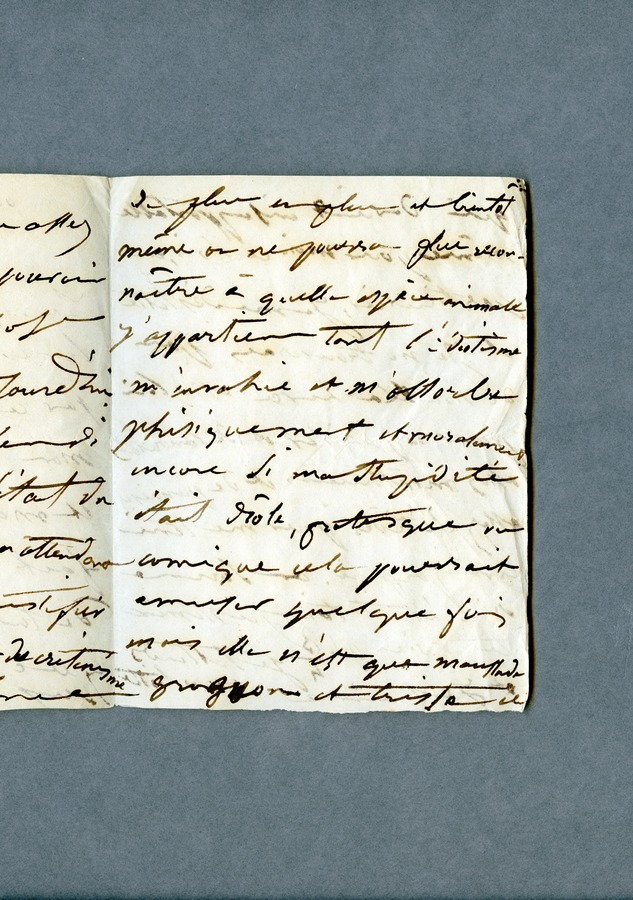 assez
pouvoir
jourd'hui
l'état du
attendant
justifier
de crétinisme
de plus en plus et bientôt
même on ne pourra plus recon-
naître à quelle espèce animale
j'appartiens tant l'idiotisme
m'envahie et m'absorbe
phisiquement et moralement
encore si ma stupidité
était drôle, grotesque ou
comique cela pourrait
amuser quelque fois
mais elle n'est que maussade
grognone et triste je